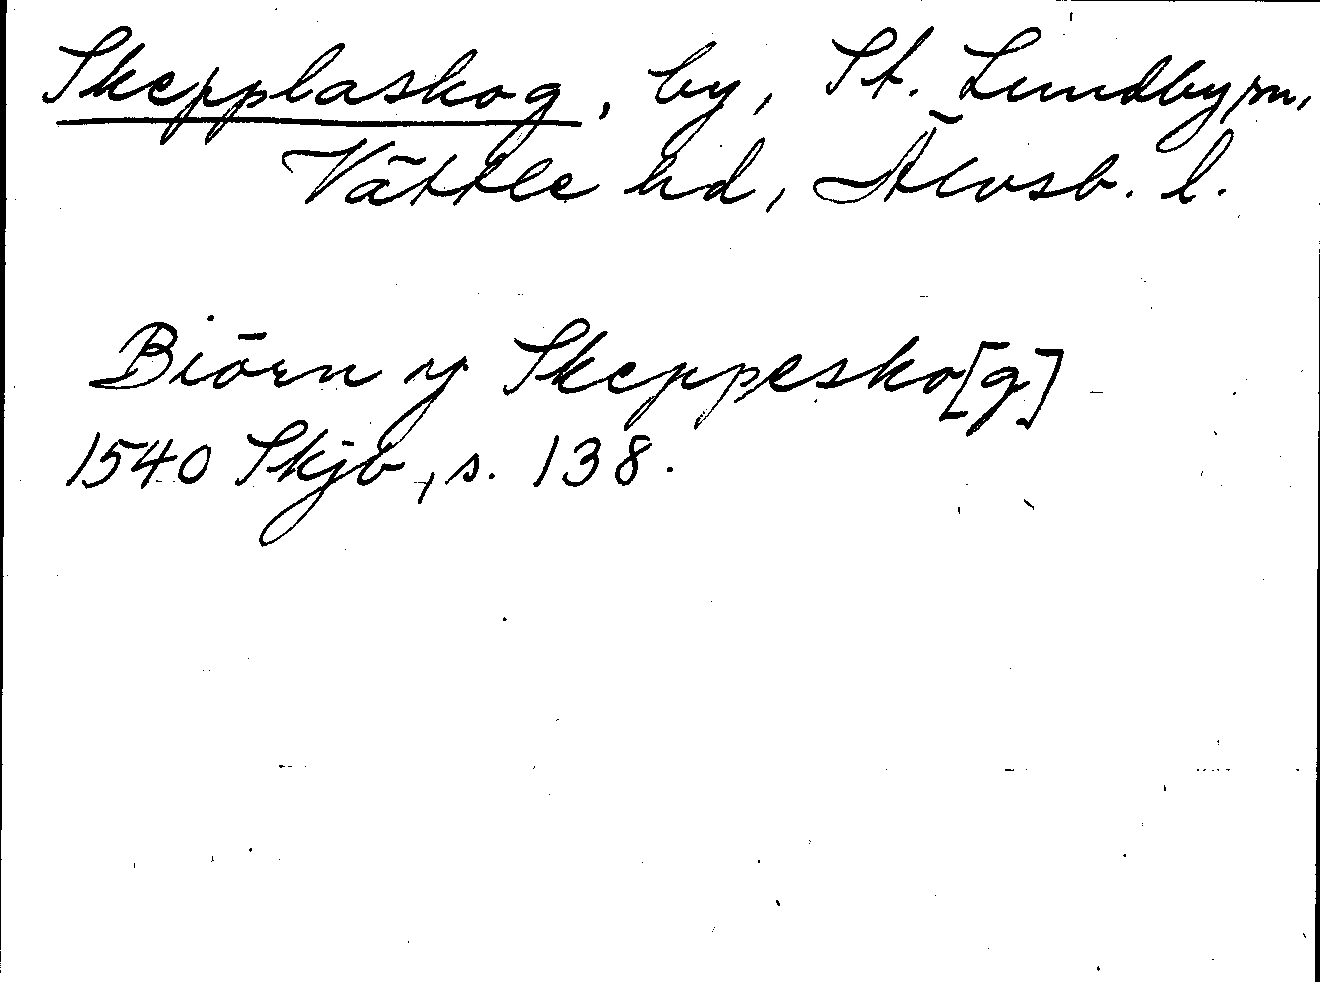 Skepplaskog, by, St. Lundby sn,
Vättle hd, Älvsb. l.
Biörn y Skeppesko[g]
1540 Skjb, s. 138.